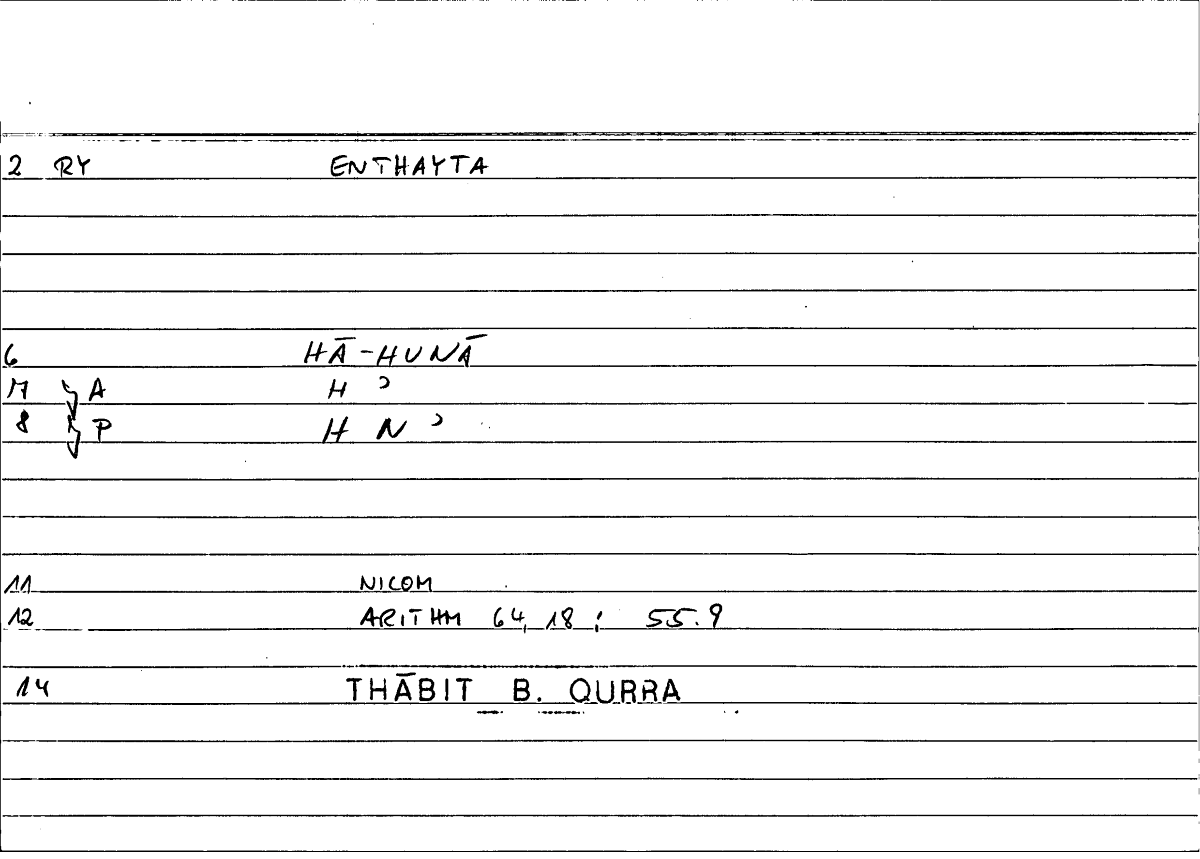 2 RY ENTHAYTA
6 HĀ-HUNĀ
17 } A H ʾ
8 } P H N ʾ
11 NICOM
12 ARITHM 64,18 ; 55.9
14 THĀBIT B. QURRA